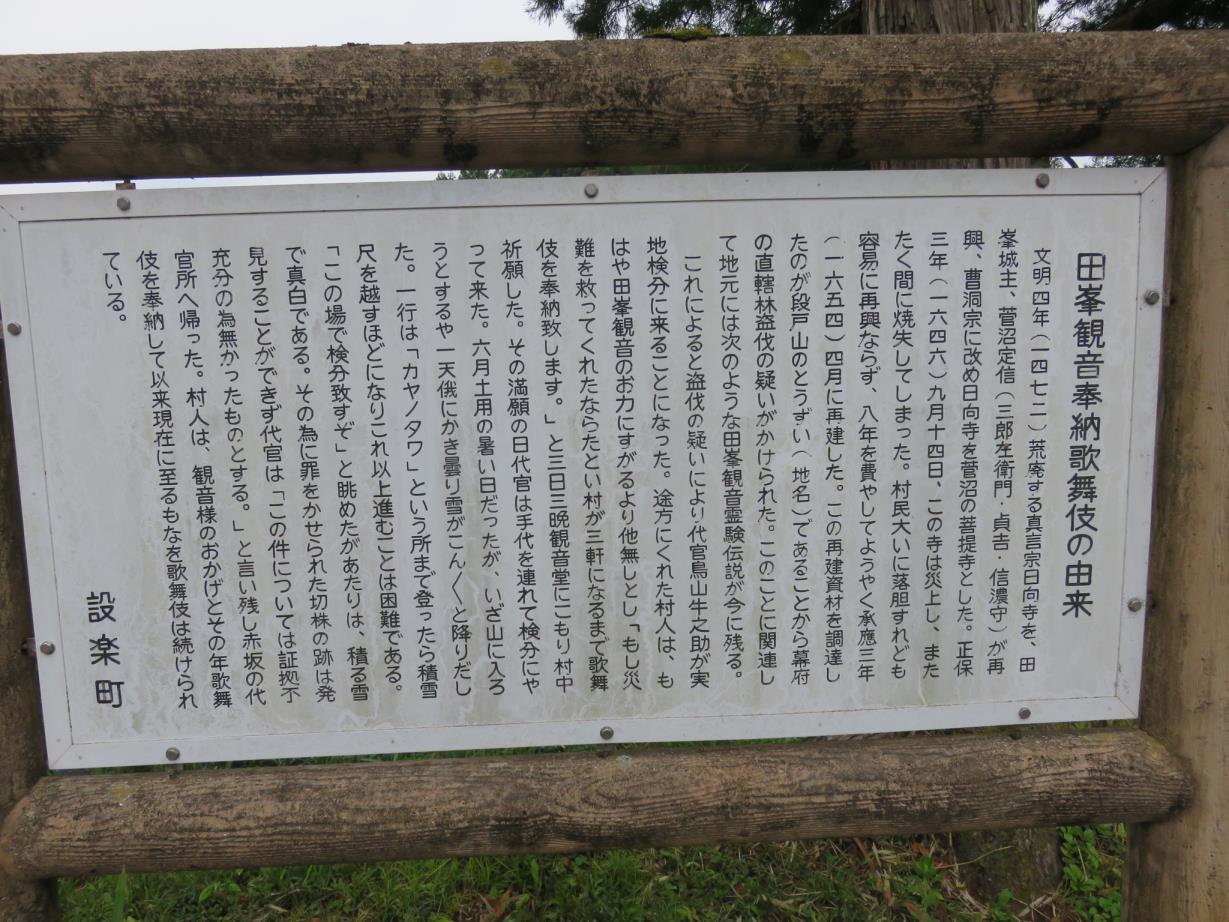 田峯観音奉納歌舞伎の由来
文明四年(一四七二)荒廃する真言宗日向寺を、田
峯城主、菅沼定信(三郎左衛門・貞吉・信濃守)が再
興、曹洞宗に改め日向寺を菅沼の菩提寺とした。正保
三年(一六四六)九月十四日、この寺は災上し、また
たく間に焼失してしまった。村民大いに落胆すれども
容易に再興ならず、八年を費やしてようやく承應三年
(一六五四)四月に再建した。この再建資材を調達し
たのが段戸山のとうずい(地名)であることから幕府
の直轄林盗伐の疑いがかけられた。このことに関連し
て地元には次のような田峯観音霊験伝説が今に残る。
これによると盗伐の疑いにより代官鳥山牛之助が実
地検分に来ることになった。途方にくれた村人は、も
はや田峯観音のお力にすがるより他無しとし「もし災
難を救ってくれたならたとい村が三軒になるまで歌舞
伎を奉納致します。」と三日三晩観音堂にこもり村中
祈願した。その満願の日代官は手代を連れて検分にや
って来た。六月土用の暑い日だったが、いざ山に入ろ
うとするや一天俄にかき曇り雪がこん〱と降りだし
た。一行は「カヤノタワ」という所まで登ったら積雪
尺を越すほどになりこれ以上進むことは困難である。
「この場で検分致すぞ」と眺めたがあたりは、積る雪
で真白である。その為に罪をかせられた切株の跡は発
見することができず代官は「この件については証拠不
充分の為無かったものとする。」と言い残し赤坂の代
官所へ帰った。村人は、観音様のおかげとその年歌舞
伎を奉納して以来現在に至るもなを歌舞伎は続けられ
ている。
設楽町